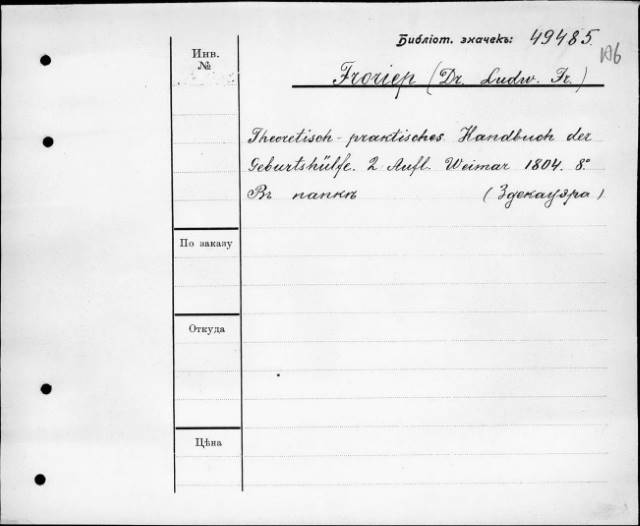 Библіот. значекъ: 49485.
Инв. №
Froriep (Dr. Ludw. Fr.)
Theoretisch-praktisches Handbuch der
Geburtshülfe. 2 Aufl. Weimar 1804. 8°
Въ папкѣ (Здекауэра)
По заказу
Откуда
Цѣна